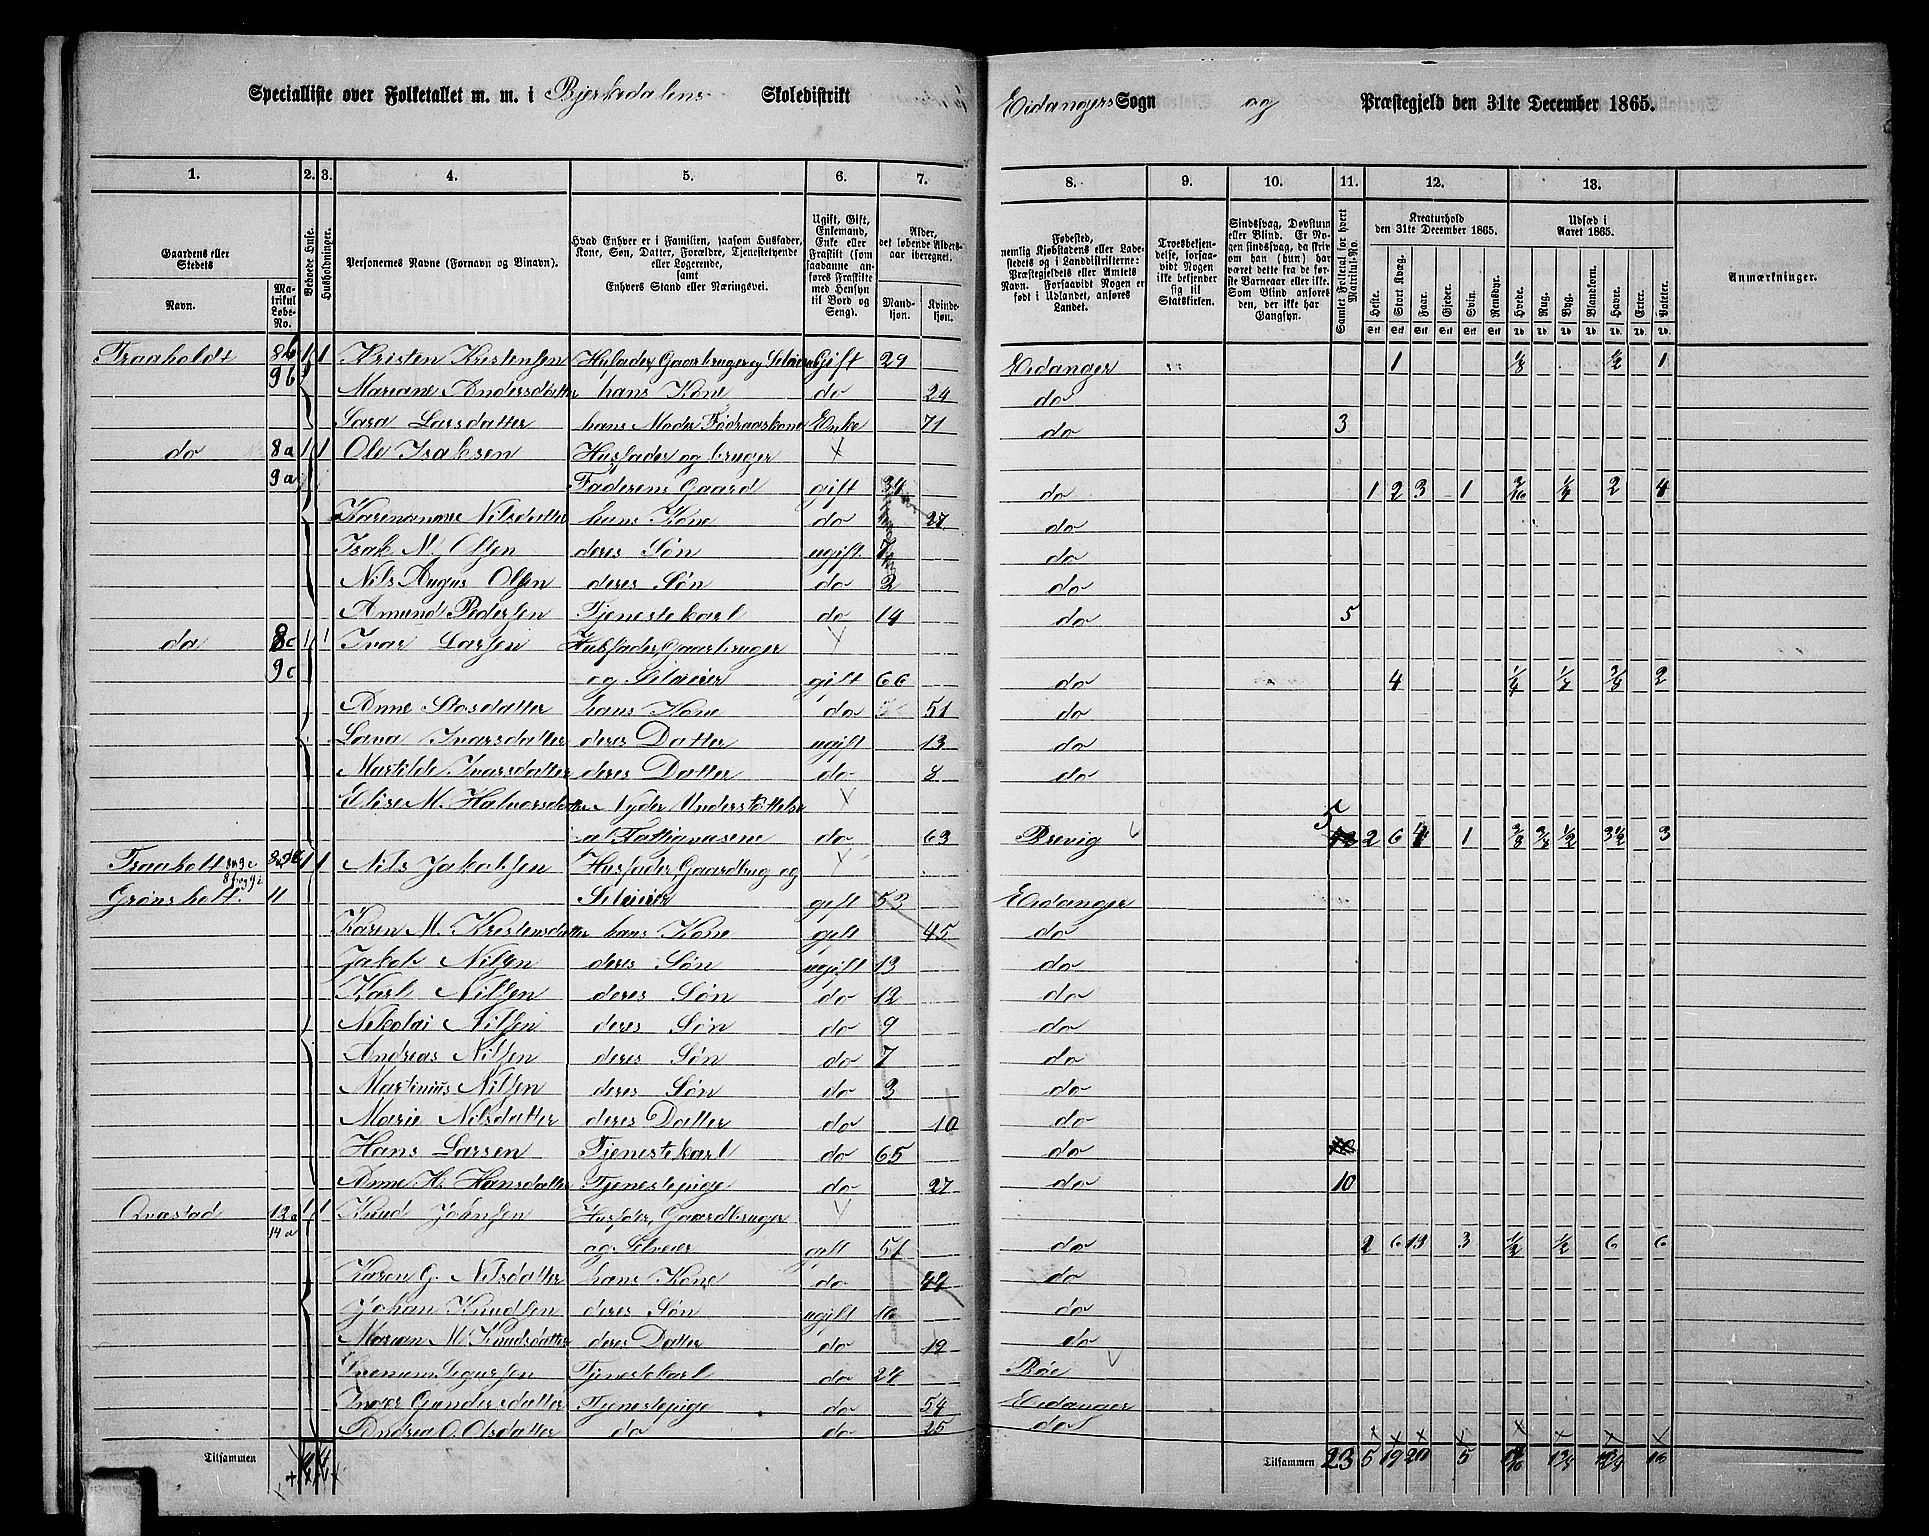 Specialliste over Folketallet m. m. i Bjerkedalens Skoledistrikt
Eidangers Sogn og Præstegjeld den 31te December 1865.
1. 2. 3. 4. 5. 6. 7.
8. 9. 10. 11. 12. 13.
Gaardens eller Stedets
Navn.
Matrikul Løbe-No.
Beboede Huse.
Husholdninger.
Personernes Navne (Fornavn og Binavn).
Hvad Enhver er i Familien, saasom Husfader, Kone, Søn, Datter, Forældre, Tjenestetyende eller Logerende, samt Enhvers Stand eller Næringsvei.
Ugift, Gift, Enkemand, Enke eller Fraskilt (som saadanne anføres Fraskilte med Hensyn til Bord og Seng).
Alder, det løbende Aldersaar iberegnet.
Mandkjøn. Kvindekjøn.
Fødested, nemlig Kjøbstadens eller Ladestedets og i Landdistrikterne: Præstegjeldets eller Amtets Navn. Forsaavidt Nogen er født i Udlandet, anføres Landet.
Troesbekjendelse, forsaavidt Nogen ikke bekjender sig til Statskirken.
Sindssvag, Døvstum eller Blind. Er Nogen sindssvag, da skrives om han (hun) har været dette fra de første Barneaar eller ikke. Som Blind anføres den, der ikke har Gangsyn.
Samlet Folketal for hvert Matrikul-No.
Kreaturhold den 31te December 1865.
Heste. Stort Kvæg. Faar. Gjeder. Svin. Rensdyr.
Udsæd i Aaret 1865.
Hvede. Rug. Byg. Blandkorn. Havre. Erter. Poteter.
Anmærkninger.
Traaholdt 8b 1 1 Kristen Kristensen Husfader, Gaarbruger og Seleier Gift 29 Eidanger 1 1/8 1/2 1
9b Mariane Andersdatter hans Kone do 24 do
Sara Larsdatter hans Moder Fødraaskone Enke 71 do 3
do 8a 1 1 Ole Isaksen Husfader og bruger
9a Faderens Gaard gift 34 do 1 2 3 1 2 4
Nilsdatter hans Kone do 27 do
Isak N. Olsen deres Søn ugift 7 do
Nils Olsen deres Søn do 2 do
Amund Pedersen Tjenestekarl do 14 do 5
do 8c 1 1 Ivar Larsen Husfader, Gaarbruger
9c og Seleier gift 66 do 4 1/4 2
Anne hans Kone do 51 do
Lava Ivarsdatter deres Datter ugift 13 do
Martilde Ivarsdatter deres Datter do 8 do
Elise M. Halvorsdatter Nyder Understøttelse
af Fattigvæsene do 63 Brevig 5 2 6 4 1 1/2 3 1/2 3
Traaholt 1 1 Nils Jakobsen Husfader, Gaardbrug og
Grønsholt. 11 Seleier gift 53 Eidanger
Karen M. Kristensdatter hans Kone gift 45 do
Jakob Nilsen deres Søn ugift 13 do
Karl Nilsen deres Søn do 12 do
Nikolai Nilsen deres Søn do 9 do
Andreas Nilsen deres Søn do 7 do
Martinius Nilsen deres Søn do 3 do
Marie Nilsdatter deres Datter do 10 do
Hans Larsen Tjenestekarl do 65 do
Anne H. Hansdatter Tjenestepige do 27 do 10
Qvæstad 12a 1 1 Knud Johnsen Husfader, Gaardbruger
14a og Selveier gift 51 do 2 6 13 3 1/2 1/2 6 6
Karen G. Nilsdatter hans Kone do 44 do
Johan Knudsen deres Søn ugift 16 do
Marian M. Knudsdatter deres Datter do 19 do
Tjenestekarl do 24 Bøe
Inger Gundersdatter Tjenestepige do 54 Eidanger
Andrea O. Olsdatter do do 25 do
Tilsammen 4 4
Tilsammen 23 5 19 20 5